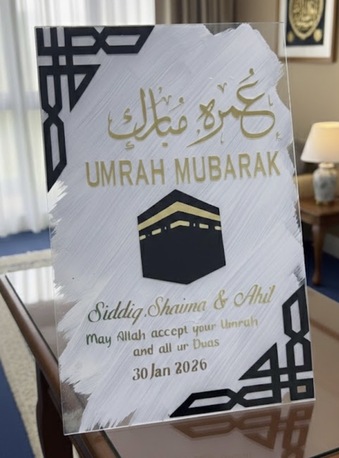 عُمرة مُبارك
UMRAH MUBARAK
Siddiq,Shaima & Ahil
May Allah accept your Umrah
and all ur Duas
30 Jan 2026